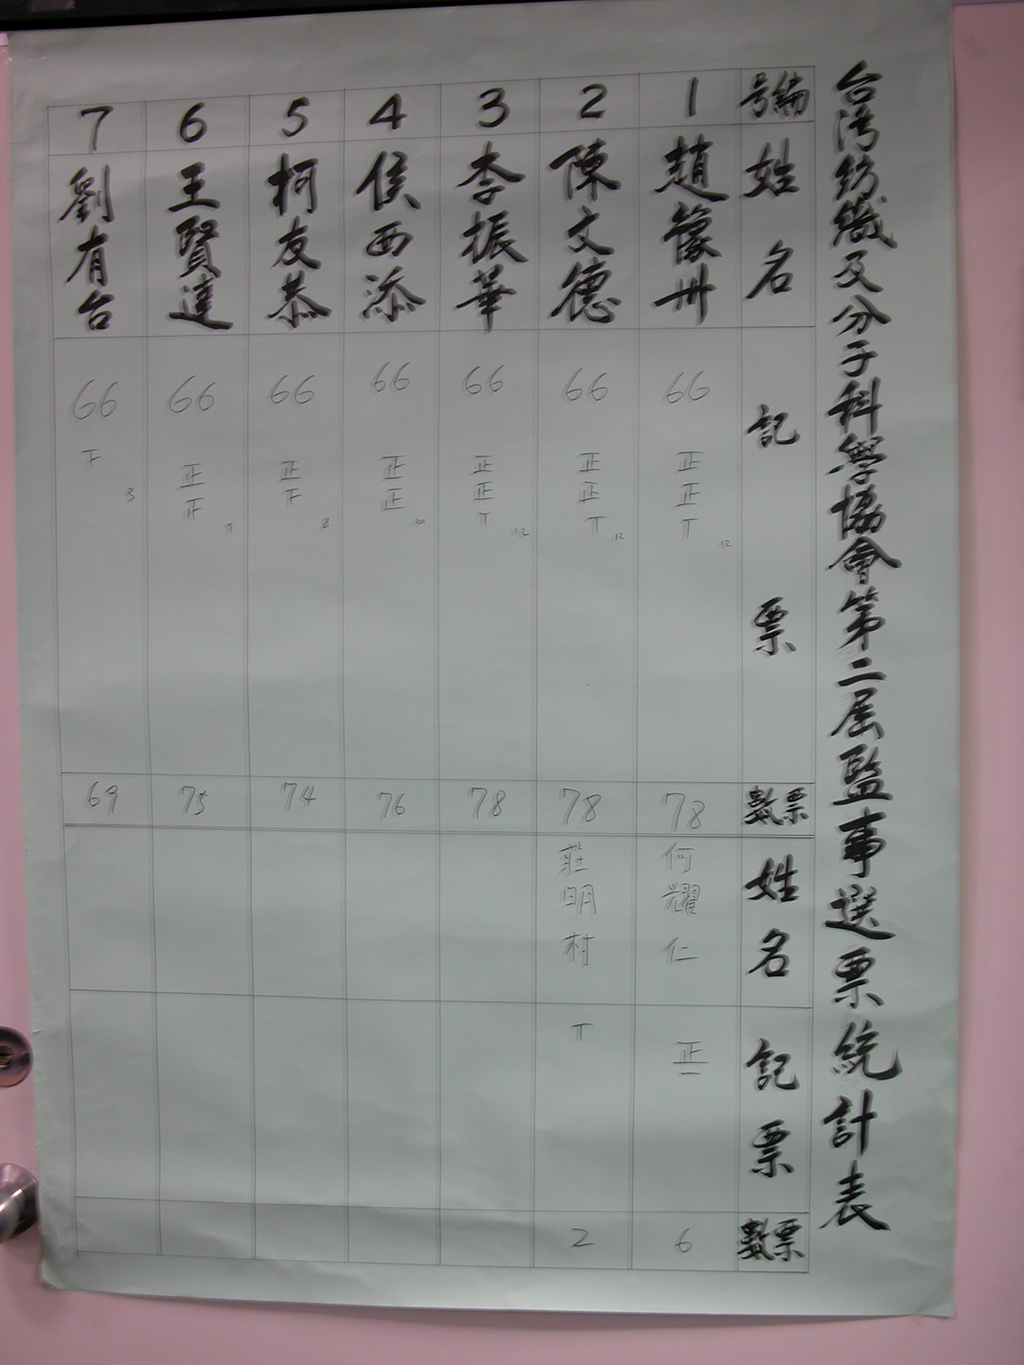 台湾紡織及分子科學協會第二屆監事選票統計表
編号 姓名 記票 票數 姓名 記票 票數
1 趙豫州 66 正正丅 12 78 何耀仁 正一 6
2 陳文德 66 正正丅 12 78 莊明村 丅 2
3 李振華 66 正正丅 12 78
4 侯西添 66 正正 10 76
5 柯友恭 66 正下 8 74
6 王賢達 66 正 75
7 劉有台 66 下 3 69